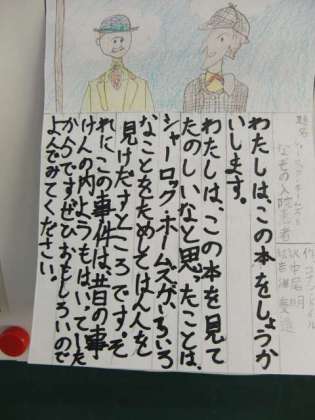 題名
シャーロック・ホームズ
なぞの入院患者
作 コナン・ドイル
訳 中尾明
わたしは、この本をしょうか
いします。
わたしは、この本を見て
たのしいなと思ったことは、
シャーロック・ホームズが、いろいろ
なことをためしてはん人を
見けだすところです。そ
れにこの事件は、昔の事
けんの内ようもはいていた
からですぜひおもしろいので
よんでみてください。